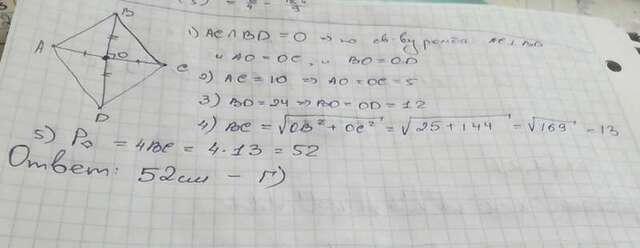 B
A
O
C
D
1) AC ∩ BD = O ⇒ по св-ву ромба AC ⊥ BD
и AO = OC, и BO = OD
2) AC = 10 ⇒ AO = OC = 5
3) BD = 24 ⇒ BO = OD = 12
4) BC = √OB² + OC² = √25 + 144 = √169 = 13
5) P◊ = 4BC = 4 · 13 = 52
Ответ: 52см – Г)